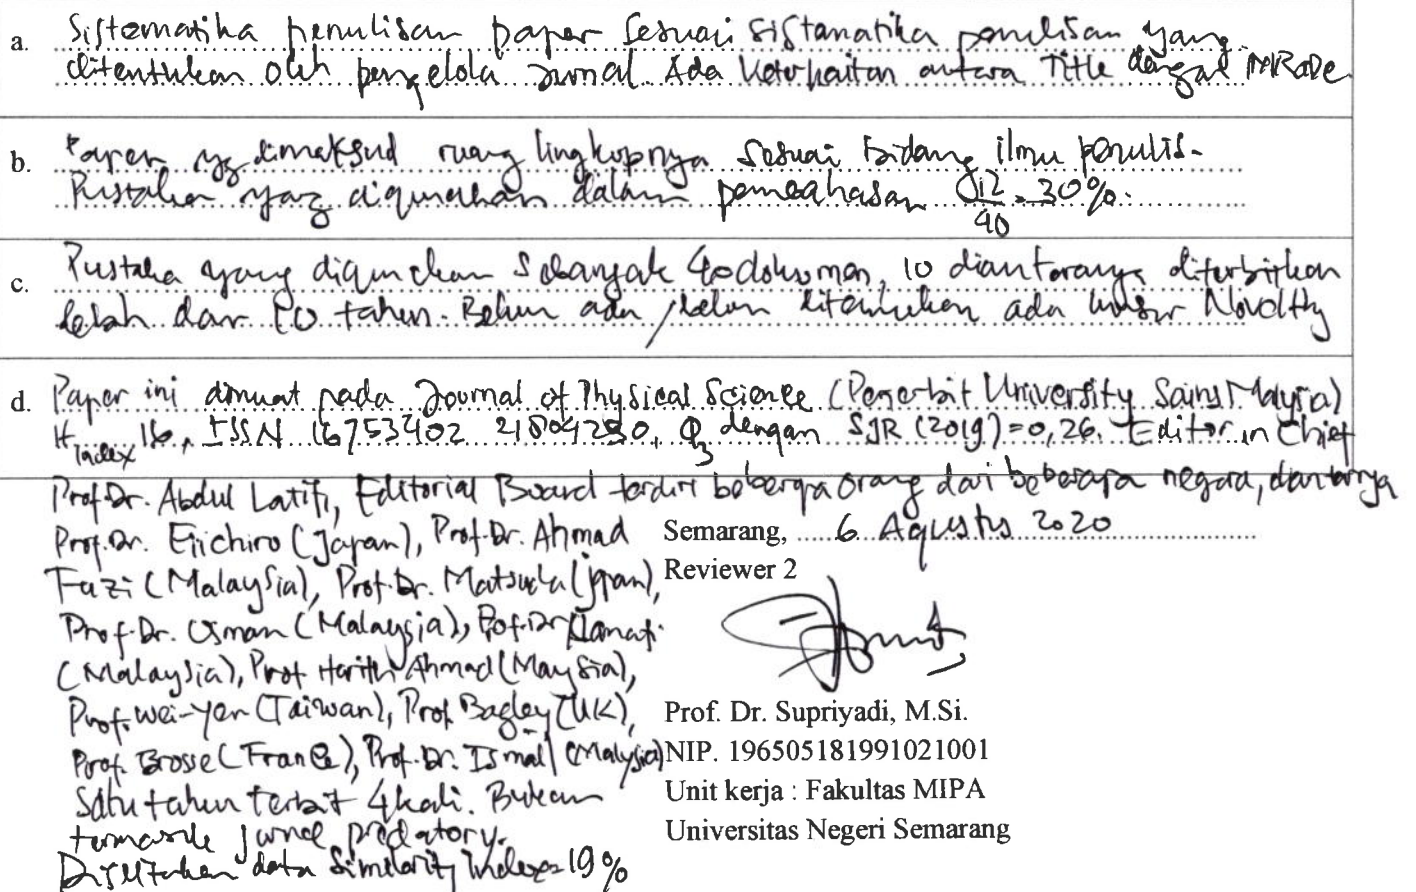 a. Sistematika penulisan paper sesuai sistamatika penulisan yang
ditentukan oleh pengelola jurnal. Ada keterkaitan antara Title dengan IMRaDe
b. Paper yg dimaksud ruang lingkupnya sesuai bidang ilmu penulis.
Pustaka yang digunakan dalam pembahasan 12/40 = 30%.
c. Pustaka yang digunakan sebanyak 40 dokumen, 10 diantaranya diterbitkan
lebih dari 10 tahun. Belum ada / belum ditemukan ada unsur Novelty
d. Paper ini dimuat pada Journal of Physical Science (Penerbit University Sains Malaysia)
H index 16, ISSN 16753402 21804230, Q3 dengan SJR (2019) = 0,26. Editor in Chief
Prof. Dr. Abdul Latif, Editorial Board terdiri beberapa orang dari beberapa negara, diantarnya
Prof. Dr. Eiichiro (Japan), Prof. Dr. Ahmad
Fuzi (Malaysia), Prof. Dr. Matsuda (Jpan),
Prof. Dr. Osman (Malaysia), Prof. Dr
(Malaysia), Prof Harith Ahmad (Maysia),
Prof. Wei-Yen (Taiwan), Prof Bagley (UK),
Prof. Brosse (France), Prof. Dr. Ismail (Malysia)
Satu tahun terbit 4 kali. Bukan
termasuk jurnal predatory.
Disertakan data Similarity Index = 19%
Semarang, 6 Agustus 2020
Reviewer 2
Prof. Dr. Supriyadi, M.Si.
NIP. 196505181991021001
Unit kerja : Fakultas MIPA
Universitas Negeri Semarang